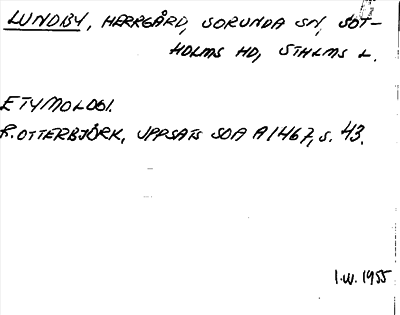 LUNDBY, HERRGÅRD, SORUNDA SN, SOT-
HOLMS HD, STHLMS L.
ETYMOLOGI.
R. OTTERBJÖRK, UPPSATS SOA A1467, S. 43.
I.W. 1955